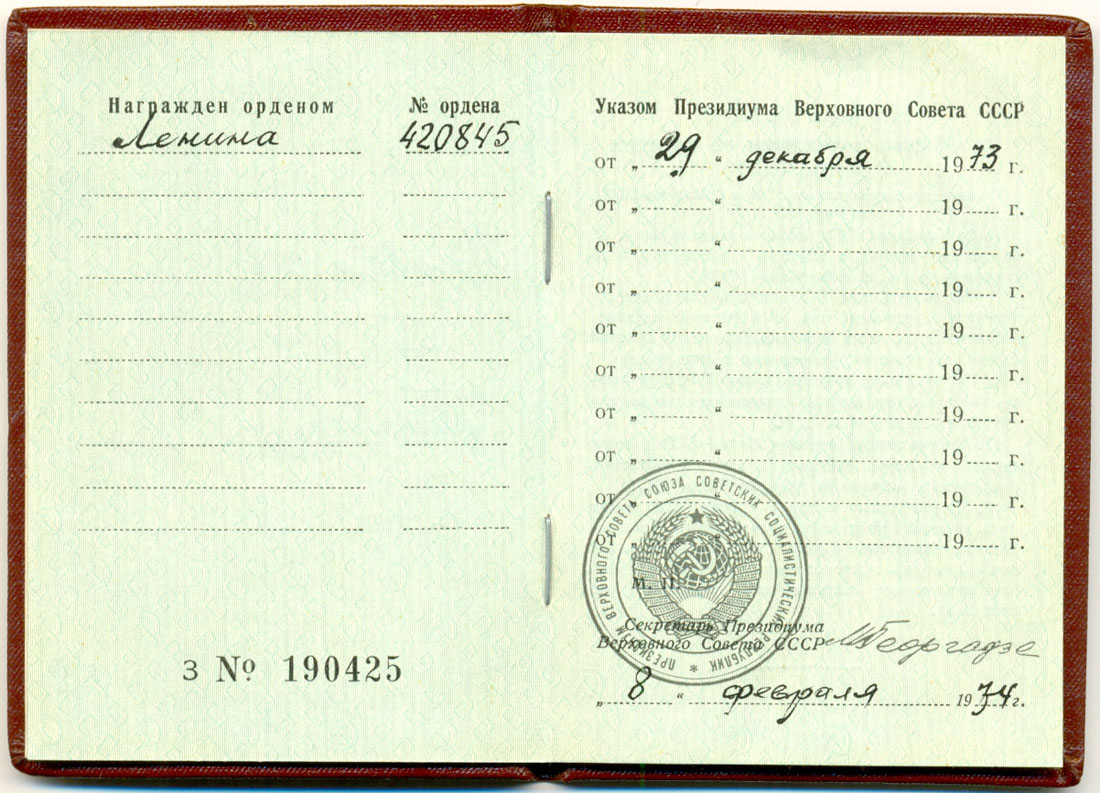 Награжден орденом
Ленина
З № 190425
№ ордена
420845
Указом Президиума Верховного Совета СССР
от „ 29 “ декабря 1973 г.
от „ “ 19 г.
от „ “ 19 г.
от „ “ 19 г.
от „ “ 19 г.
от „ “ 19 г.
от „ “ 19 г.
от „ “ 19 г.
от „ “ 19 г.
от „ “ 19 г.
М. П.
ПРЕЗИДИУМ ВЕРХОВНОГО СОВЕТА СОЮЗА СОВЕТСКИХ СОЦИАЛИСТИЧЕСКИХ РЕСПУБЛИК *
Секретарь Президиума
Верховного Совета СССР МГеоргадзе
„ 8 “ февраля 1974 г.